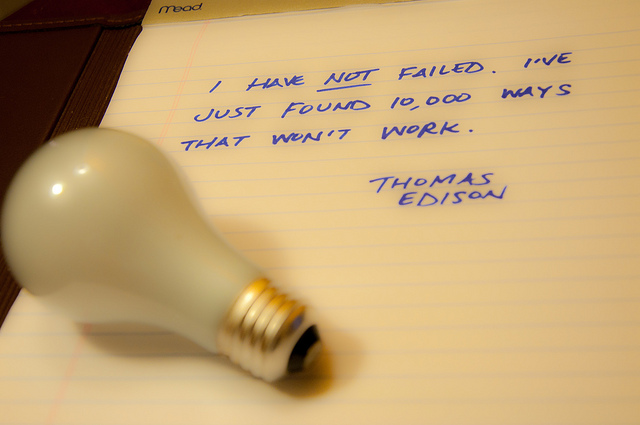 mead
I HAVE NOT FAILED. I'VE
JUST FOUND 10,000 WAYS
THAT WON'T WORK.
THOMAS
EDISON